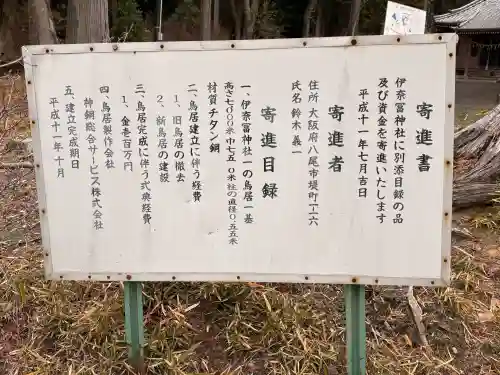 寄進書
伊奈冨神社に別添目録の品
及び資金を寄進いたします
平成十一年七月吉日
寄進者
住所 大阪府八尾市堤町一ー六
氏名 鈴木義一
寄進目録
一、伊奈冨神社一の鳥居一基
高さ七〇〇〇米中七五〇米柱の直径〇.五五米
材質チタン銅
二、鳥居建立に伴う経費
1、旧鳥居の撤去
2、新鳥居の建設
三、鳥居完成に伴う式典経費
1、金壱百万円
四、鳥居製作会社
神鋼総合サービス株式会社
五、建立完成期日
平成十一年十月